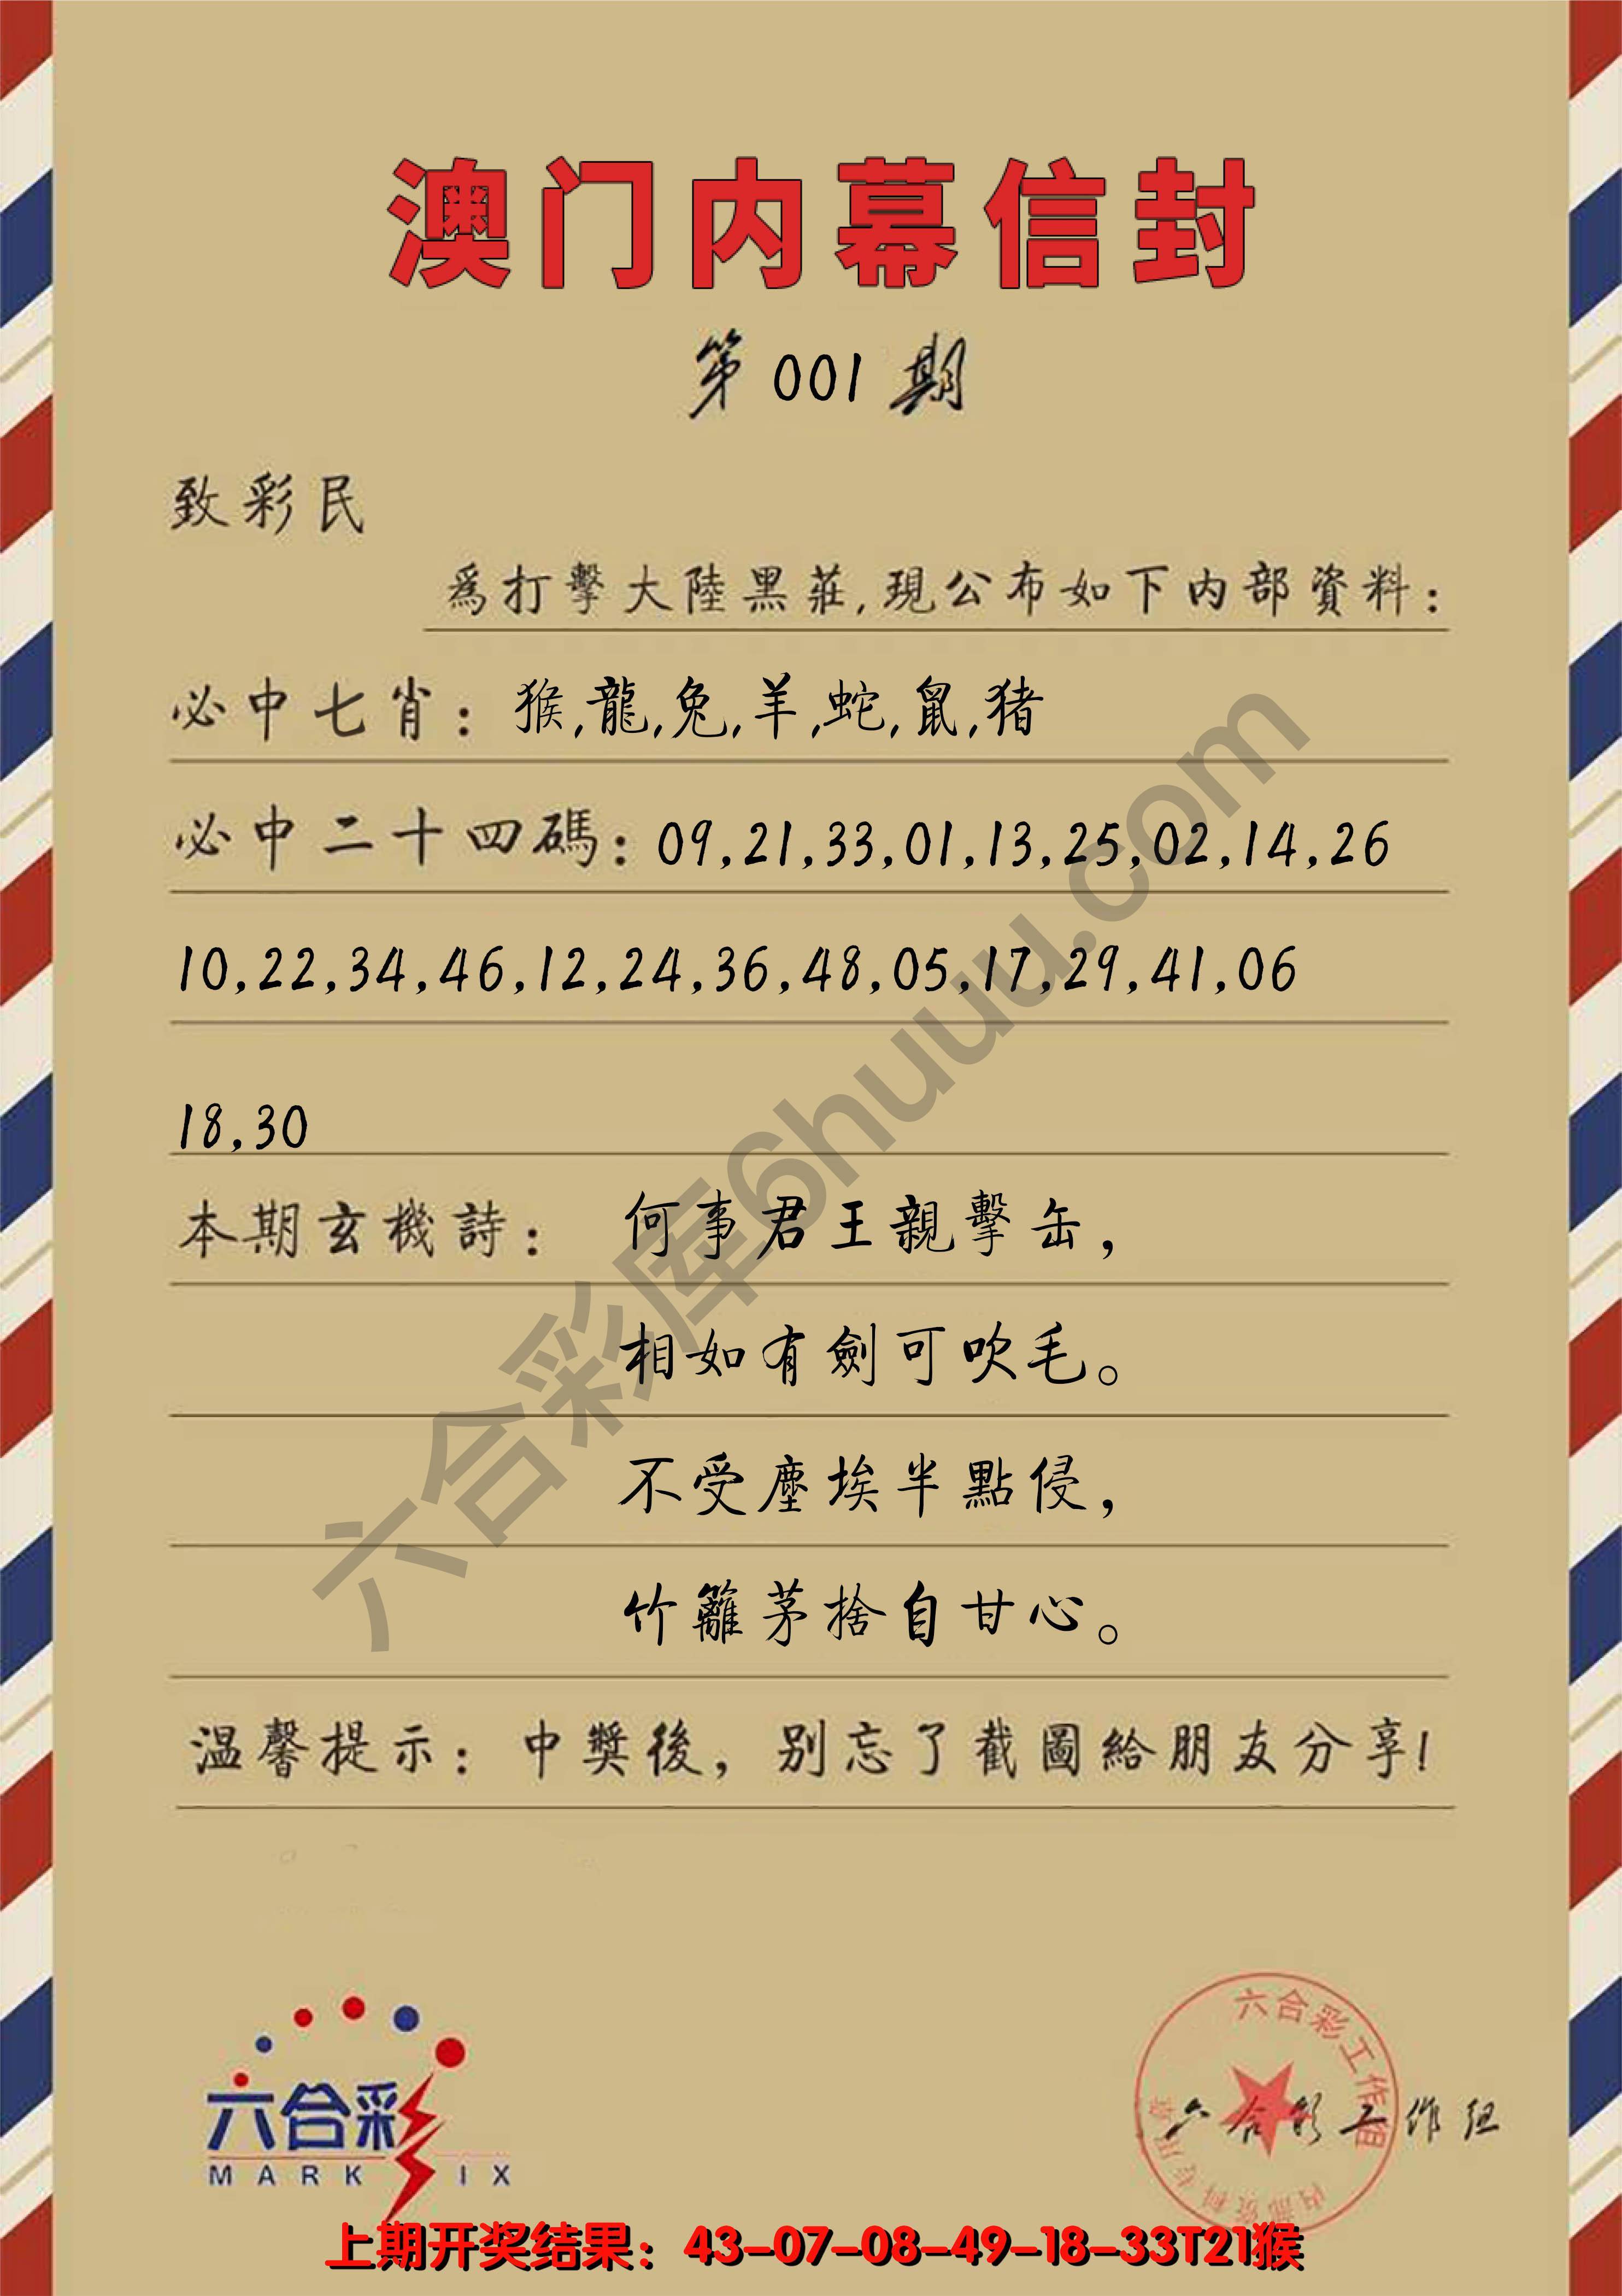 澳门内幕信封
第001期
致彩民
爲打擊大陸黑莊,現公布如下内部資料:
必中七肖: 猴,龍,兔,羊,蛇,鼠,猪
必中二十四碼: 09,21,33,01,13,25,02,14,26
10,22,34,46,12,24,36,48,05,17,29,41,06
18,30
本期玄機詩: 何事君王親擊缶,
相如有劍可吹毛。
不受塵埃半點侵,
竹籬茅捨自甘心。
温馨提示: 中獎後, 别忘了截圖給朋友分享!
六合彩库6huuu.com
六合彩
MARK IX
六合彩工作组
内部资料专用章
六合彩工作组
上期开奖结果: 43-07-08-49-18-33T21猴